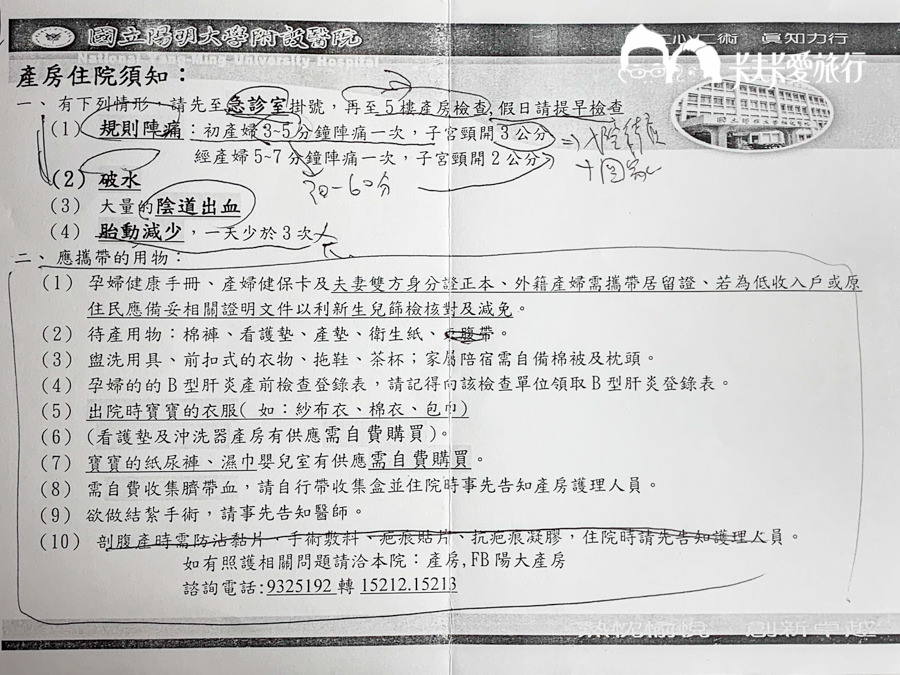 國立陽明大學附設醫院
National Yang-Ming University Hospital
仁心仁術 真知力行
卡夫卡愛旅行
產房住院須知：
一、有下列情形，請先至急診室掛號，再至5樓產房檢查,假日請提早檢查
(1) 規則陣痛：初產婦3~5分鐘陣痛一次，子宮頸開3公分
經產婦5~7分鐘陣痛一次，子宮頸開2公分
30-60分
(2) 破水
(3) 大量的陰道出血
(4) 胎動減少，一天少於3次
二、應攜帶的用物：
(1) 孕婦健康手冊、產婦健保卡及夫妻雙方身分證正本、外籍產婦需攜帶居留證、若為低收入戶或原
住民應備妥相關證明文件以利新生兒篩檢核對及減免。
(2) 待產用物：棉褲、看護墊、產墊、衛生紙、腹帶。
(3) 盥洗用具、前扣式的衣物、拖鞋、茶杯；家屬陪宿需自備棉被及枕頭。
(4) 孕婦的的B型肝炎產前檢查登錄表，請記得向該檢查單位領取B型肝炎登錄表。
(5) 出院時寶寶的衣服( 如：紗布衣、棉衣、包巾)
(6) (看護墊及沖洗器產房有供應需自費購買)。
(7) 寶寶的紙尿褲、濕巾嬰兒室有供應需自費購買。
(8) 需自費收集臍帶血，請自行帶收集盒並住院時事先告知產房護理人員。
(9) 欲做結紮手術，請事先告知醫師。
(10) 剖腹產時需防沾黏片、手術敷料、疤痕貼片、抗疤痕凝膠，住院時請先告知護理人員。
如有照護相關問題請洽本院：產房,FB陽大產房
諮詢電話:9325192轉15212.15213
熱忱愉悅 創新卓越